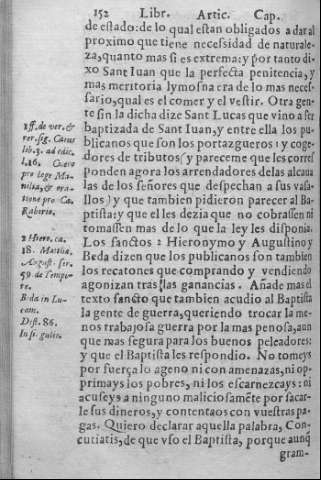 152 Libr. Artic. Cap.
de estado: de lo qual estan obligados a dar al
proximo que tiene necessidad de naturale-
za, quanto mas si es extrema: y por tanto di-
xo Sant Iuan que la perfecta penitencia, y
mas meritoria lymosna era de lo mas neces-
sario, qual es el comer y el vestir. Otra gen-
te sin la dicha dize Sant Lucas que vino a ser
baptizada de Sant Iuan, y entre ella los pu-
blicanos que son los portazgueros: y coge-
dores de tributos, y pareceme que les corres
ponden agora los arrendadores de las alcaua
las de los señores que despechan a sus vasa-
llos) y que tambien pidieron parecer al Ba-
ptista: y que el les dezia que no cobrassen ni
tomassen mas de lo que la ley les disponia.
Los sanctos 2 Hieronymo y Augustino y
Beda dizen que los publicanos son tambien
los recatones que comprando y vendiendo
agonizan tras las ganancias. Añade mas el
texto sancto que tambien acudio al Baptista
la gente de guerra, queriendo trocar la me-
nos trabajosa guerra por la mas penosa, aun
que mas segura para los buenos peleadores:
y que el Baptista les respondio. No tomeys
por fuerça lo ageno ni con amenazas, ni op-
primays los pobres, ni los escarnezcays: ni
acuseys a ninguno maliciosamẽte por sacar-
le sus dineros, y contentaos con vuestras pa-
gas. Quiero declarar aquella palabra, Con-
cutiatis, de que vso el Baptista, porque aunq̃
gram-
1 ff. de ver. &
rer. sig. Caius
lib. 3. ad edic.
l. 16. Cicero
pro lege Ma-
nilia, & ora-
tione pro Ca.
Rabirio.
2 Hiero. ca.
18. Matthæ.
August. ser.
59. de Tempo-
re.
Beda in Lu-
cam.
Dist. 86.